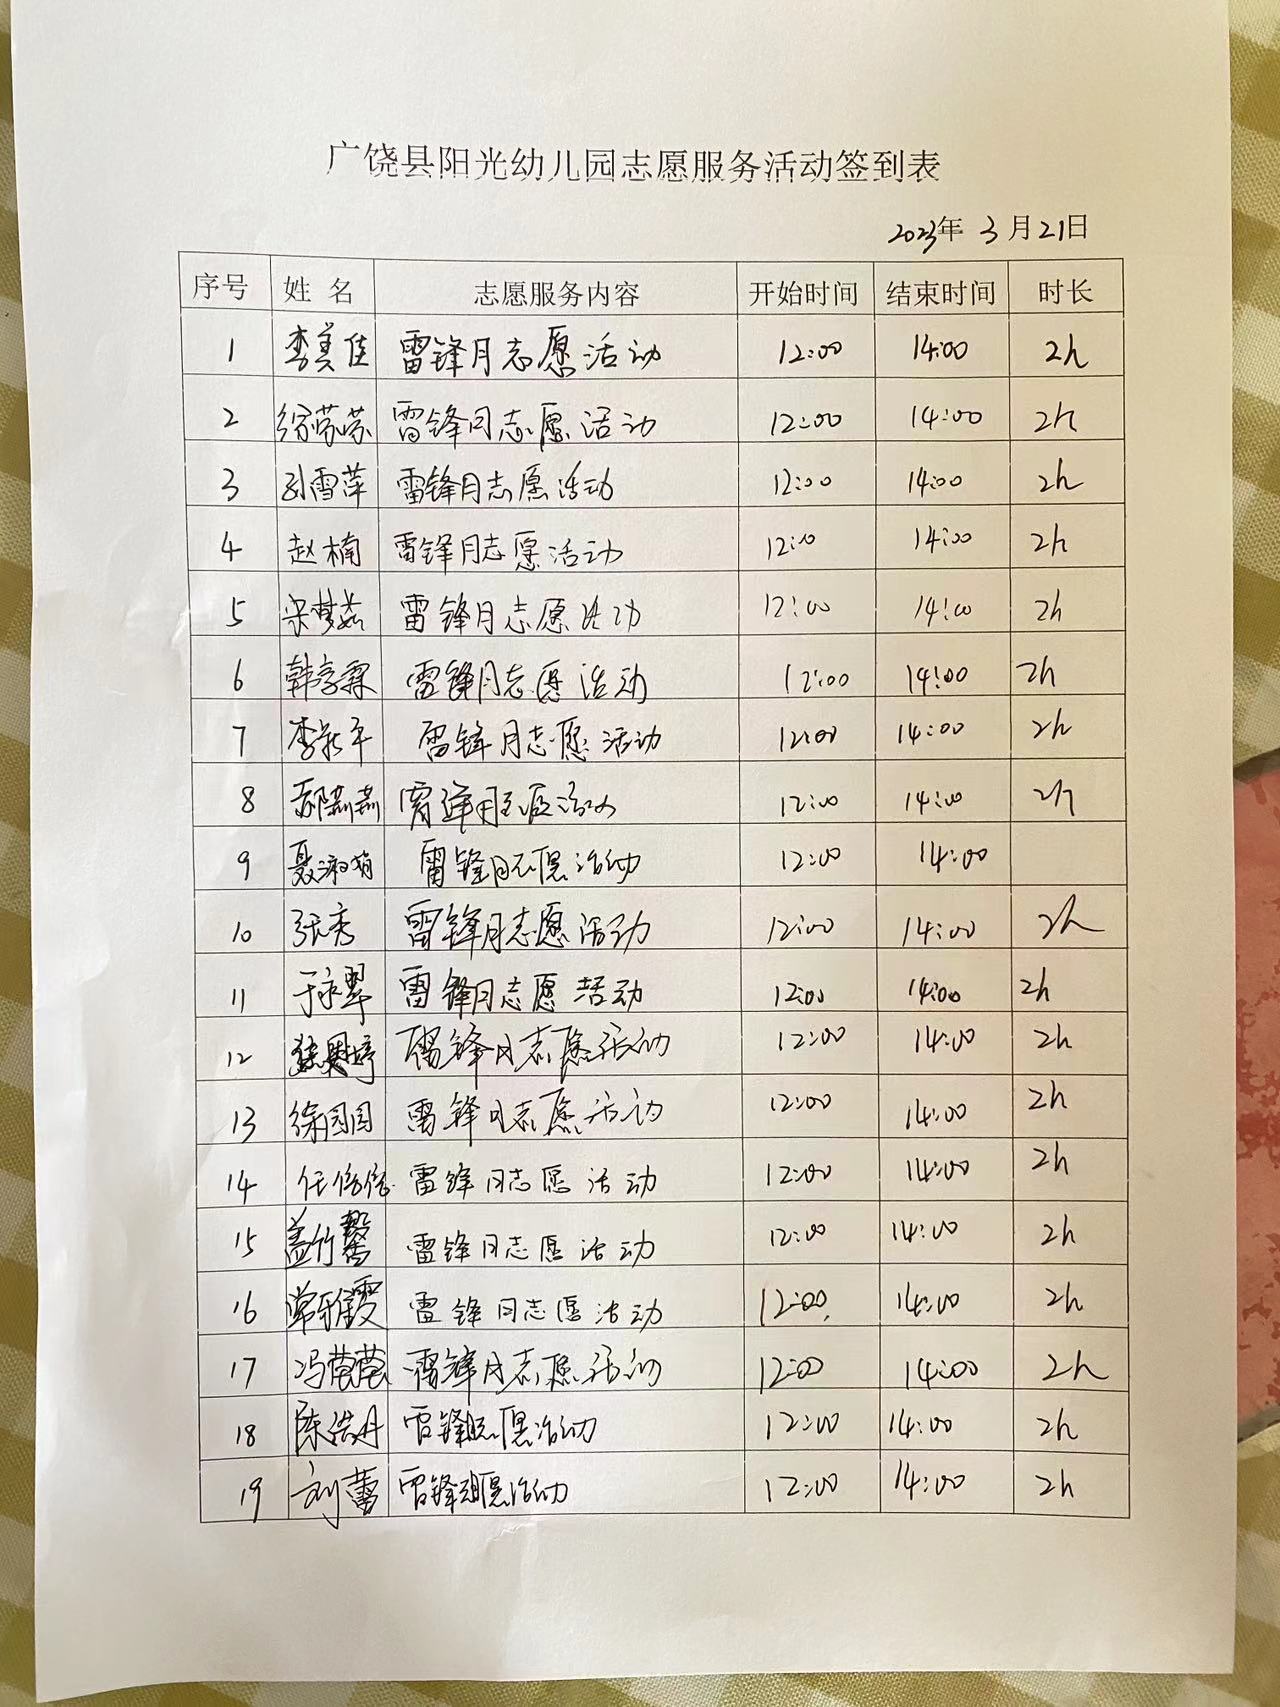 广饶县阳光幼儿园志愿服务活动签到表
2023年 3月21日
序号 姓名 志愿服务内容 开始时间 结束时间 时长
1 李美佳 雷锋月志愿活动 12:00 14:00 2h
2 徐苏苏 雷锋月志愿活动 12:00 14:00 2h
3 孙雪萍 雷锋月志愿活动 12:00 14:00 2h
4 赵楠 雷锋月志愿活动 12:00 14:00 2h
5 宋梦茹 雷锋月志愿活动 12:00 14:00 2h
6 韩享霖 雷锋月志愿活动 12:00 14:00 2h
7 李新平 雷锋月志愿活动 12:00 14:00 2h
8 燕燕 雷锋月志愿活动 12:00 14:00 2h
9 聂淑娟 雷锋月志愿活动 12:00 14:00
10 张秀 雷锋月志愿活动 12:00 14:00 2h
11 于永翠 雷锋月志愿活动 12:00 14:00 2h
12 雷锋月志愿活动 12:00 14:00 2h
13 徐园园 雷锋月志愿活动 12:00 14:00 2h
14 任倩倩 雷锋月志愿活动 12:00 14:00 2h
15 盖竹馨 雷锋月志愿活动 12:00 14:00 2h
16 常雅雯 雷锋月志愿活动 12:00 14:00 2h
17 冯莹莹 雷锋月志愿活动 12:00 14:00 2h
18 陈浩丹 雷锋月志愿活动 12:00 14:00 2h
19 刘蕾 雷锋月志愿活动 12:00 14:00 2h